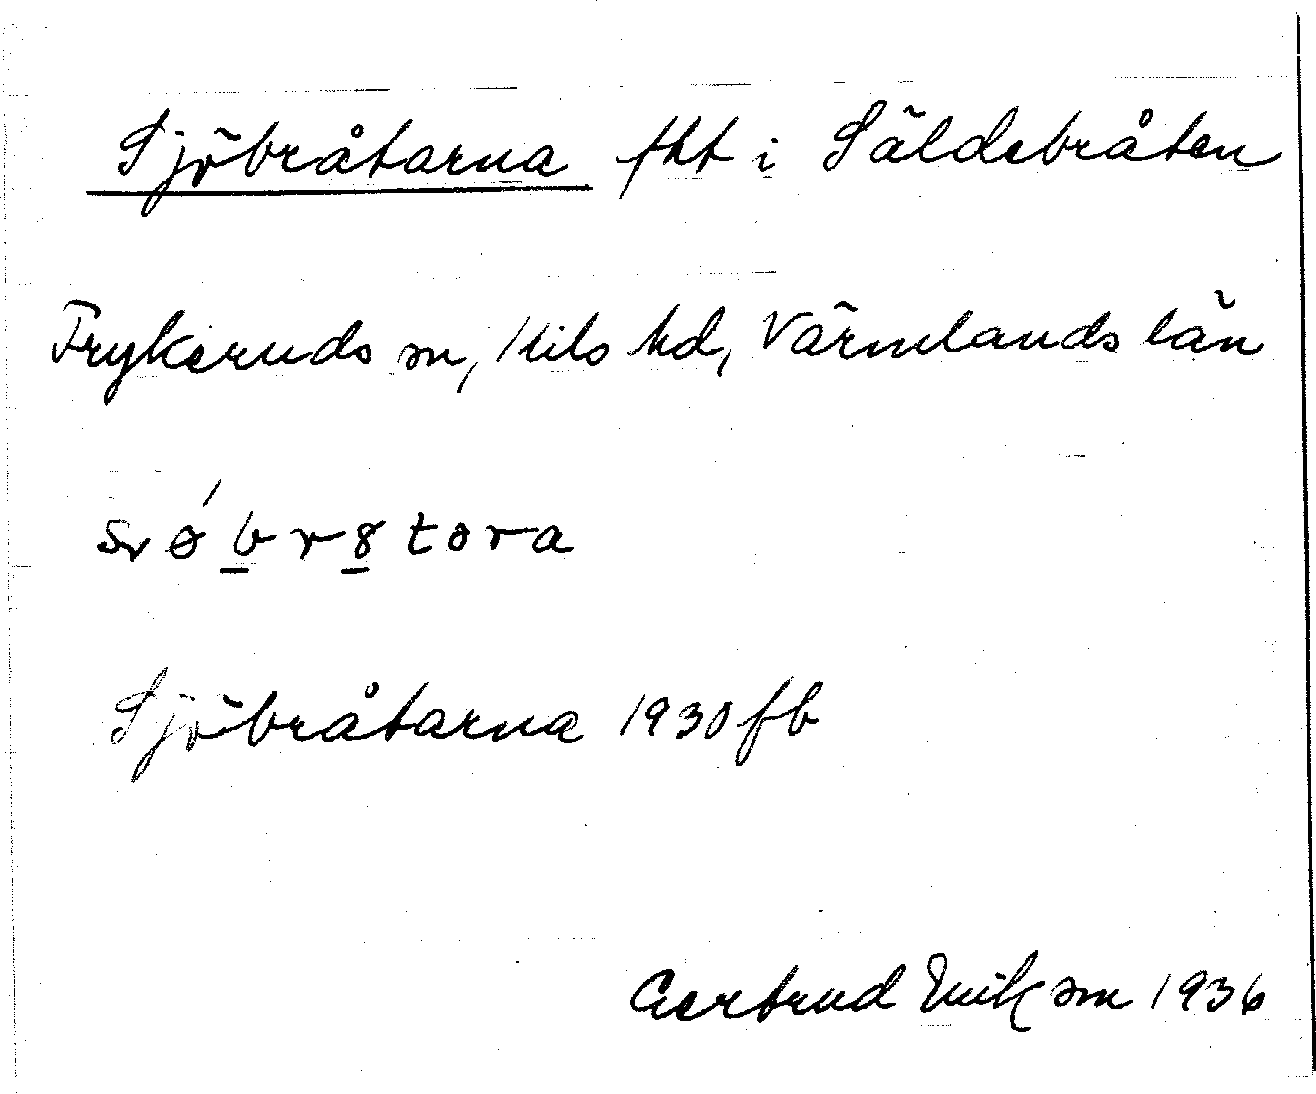 Sjöbråtarna fht i Säldebråten
Frykeruds sn, Kils hd, Värmlands län
Sjöbråtarna 1930 fb
Gertrud Erikson 1936